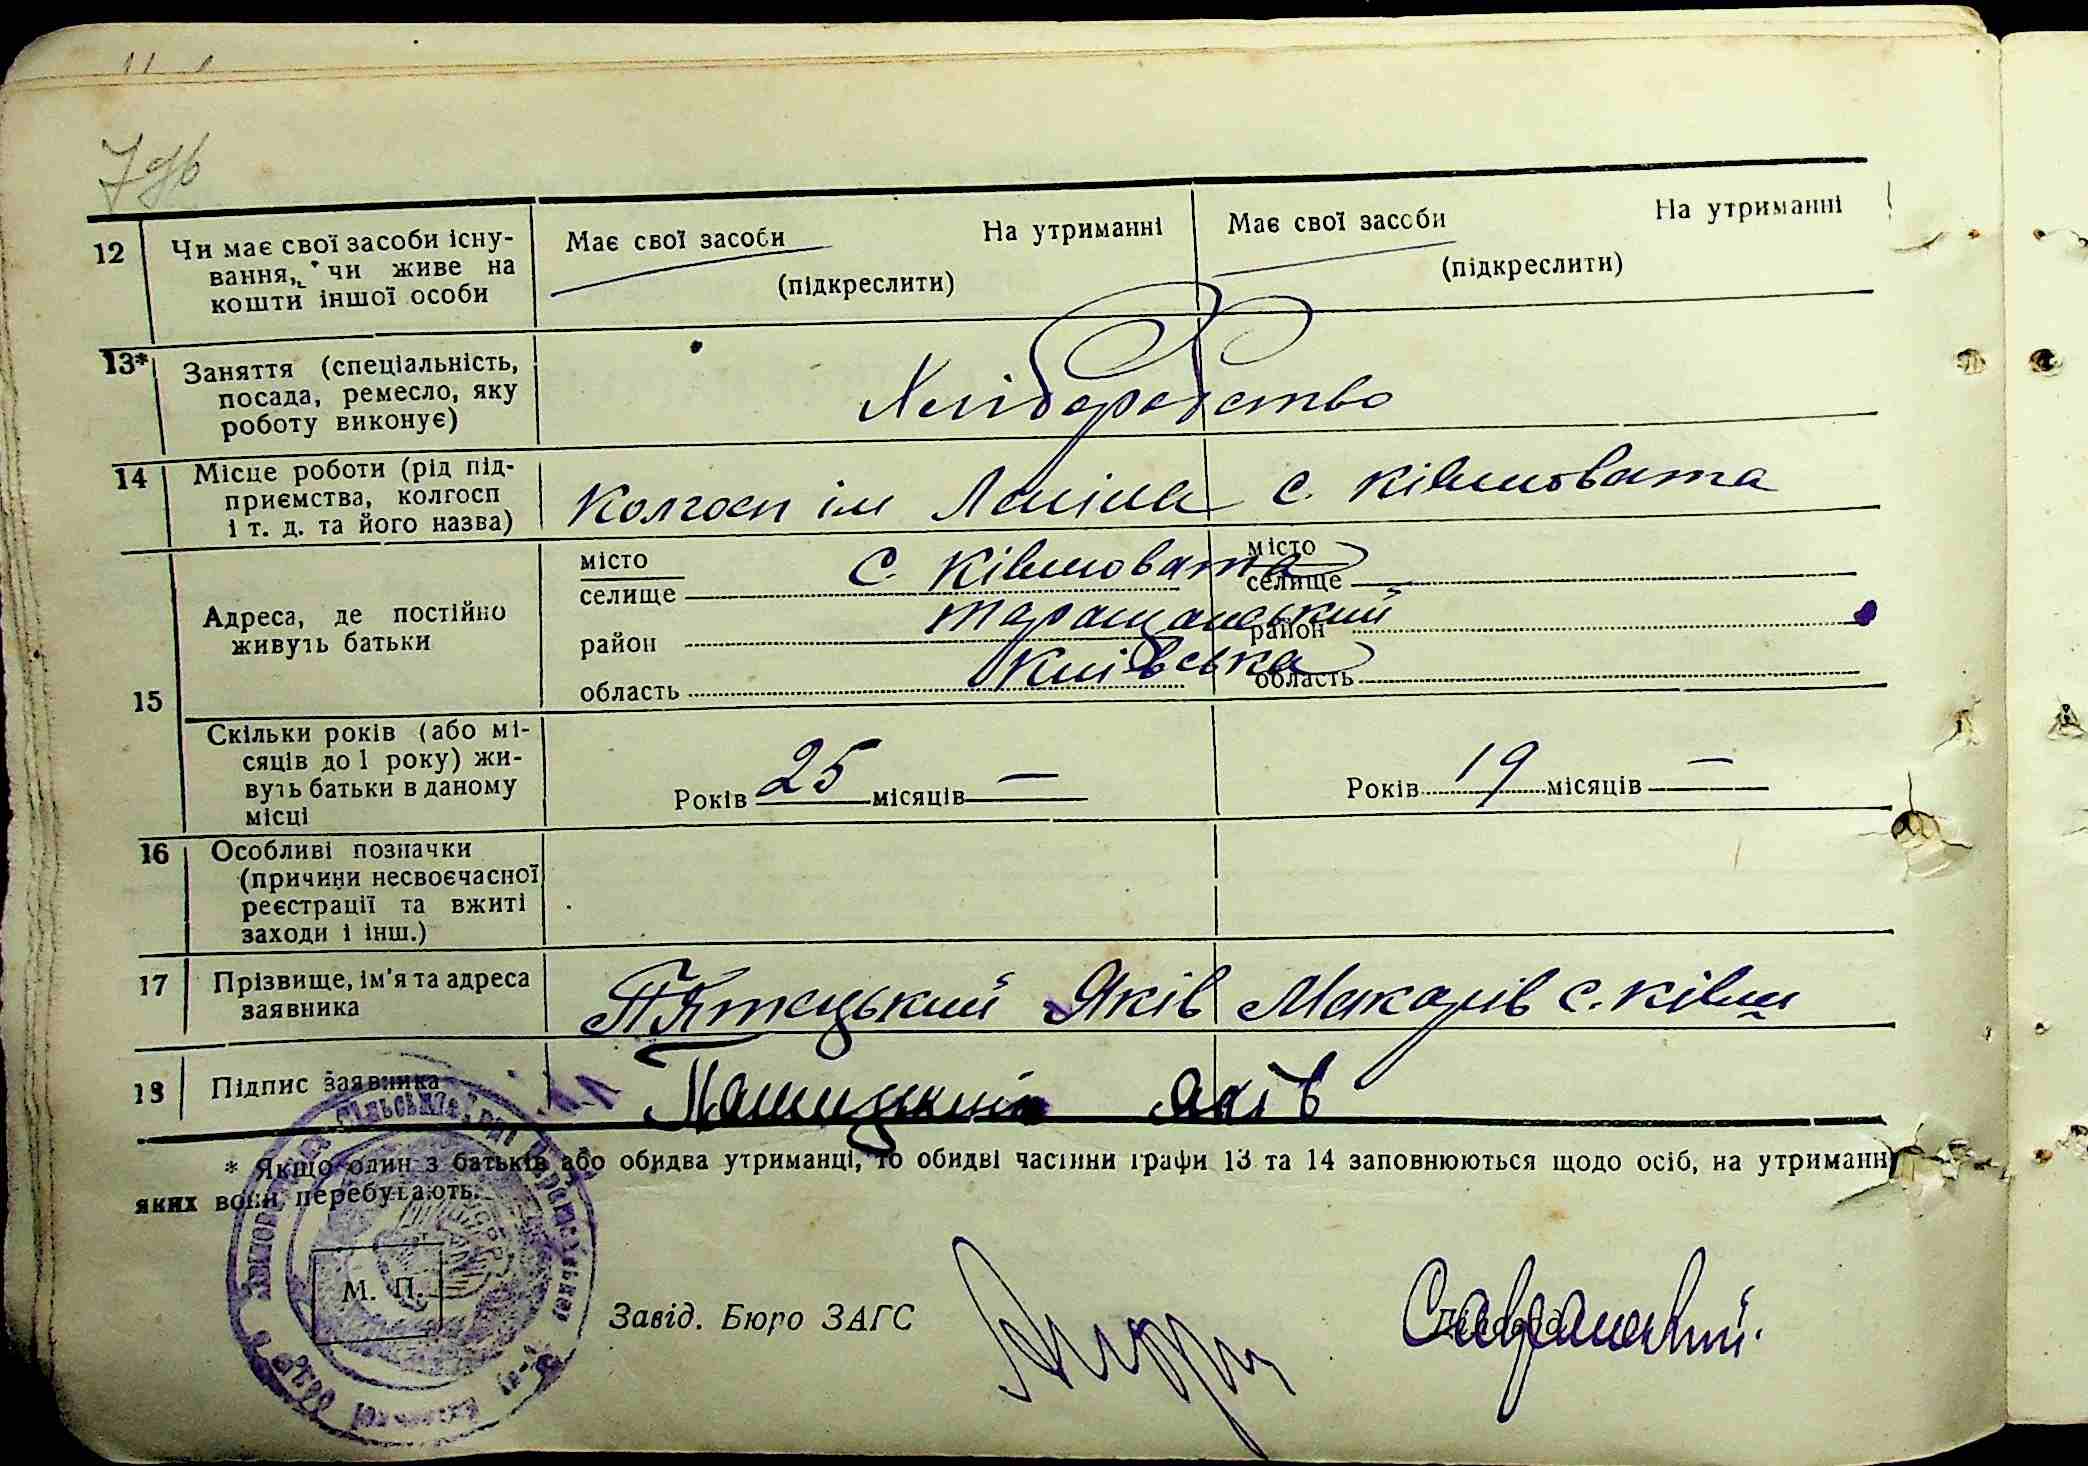 12 Чи має свої засоби існу-
вання, чи живе на
кошти іншої особи
Має свої засоби На утриманні
(підкреслити)
Має свої засоби На утриманні
(підкреслити)
13* Заняття (спеціальність,
посада, ремесло, яку
роботу виконує)
Хліборобство
14 Місце роботи (рід під-
приємства, колгосп
і т. д. та його назва)
Колгосп ім Леніна с. Ківшовата
15
Адреса, де постійно
живуть батьки
місто
селище с. Ківшовата
район Таращанський
область Київська
місто
селище
район
область
Скільки років (або мі-
сяців до 1 року) жи-
вуть батьки в даному
місці
Років 25 місяців —
Років 19 місяців —
16 Особливі позначки
(причини несвоєчасної
реєстрації та вжиті
заходи і інш.)
17 Прізвище, ім'я та адреса
заявника
Яків Макарів с. Ківш
18 Підпис заявника
Яків
* Якщо один з батьків або обидва утриманці, то обидві частини графи 13 та 14 заповнюються щодо осіб, на утриманні
яких вони перебувають.
М. П.
Завід. Бюро ЗАГС